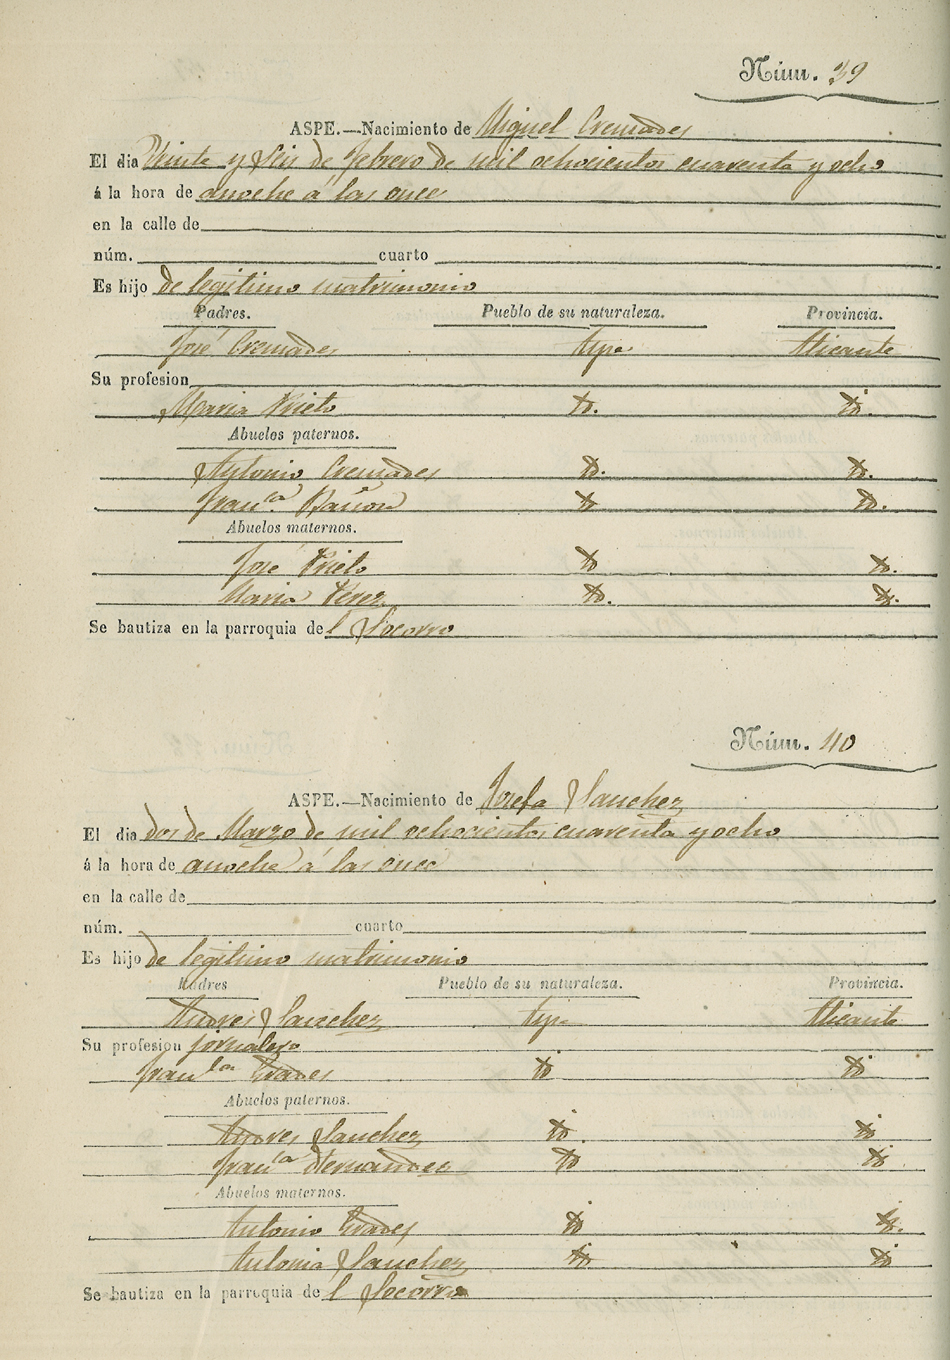 Núm. 39
ASPE.—Nacimiento de Miguel Cremades
El dia Veinte y Seis de Febrero de mil ochocientos cuarenta y ocho
á la hora de anoche á las once
en la calle de
núm. cuarto
Es hijo de legitimo matrimonio
Padres. Pueblo de su naturaleza. Provincia.
José Cremades Aspe Alicante
Su profesion
Maria Prieto id. id.
Abuelos paternos.
Antonio Cremades id. id.
Fran.ca Bañon id id.
Abuelos maternos.
José Prieto id id.
Maria Perez id. id.
Se bautiza en la parroquia del Socorro
Núm. 40
ASPE.—Nacimiento de Josefa Sanchez
El dia dos de Marzo de mil ochocientos cuarenta y ocho
á la hora de anoche á las once
en la calle de
núm. cuarto
Es hijo de legitimo matrimonio
Padres Pueblo de su naturaleza. Provincia.
Andres Sanchez Aspe Alicante
Su profesion jornalero
Fran.ca id id
Abuelos paternos.
Andres Sanchez id. id
Fran.ca Hernandez id id
Abuelos maternos.
Antonio id id.
Antonia Sanchez id id
Se bautiza en la parroquia del Socorro